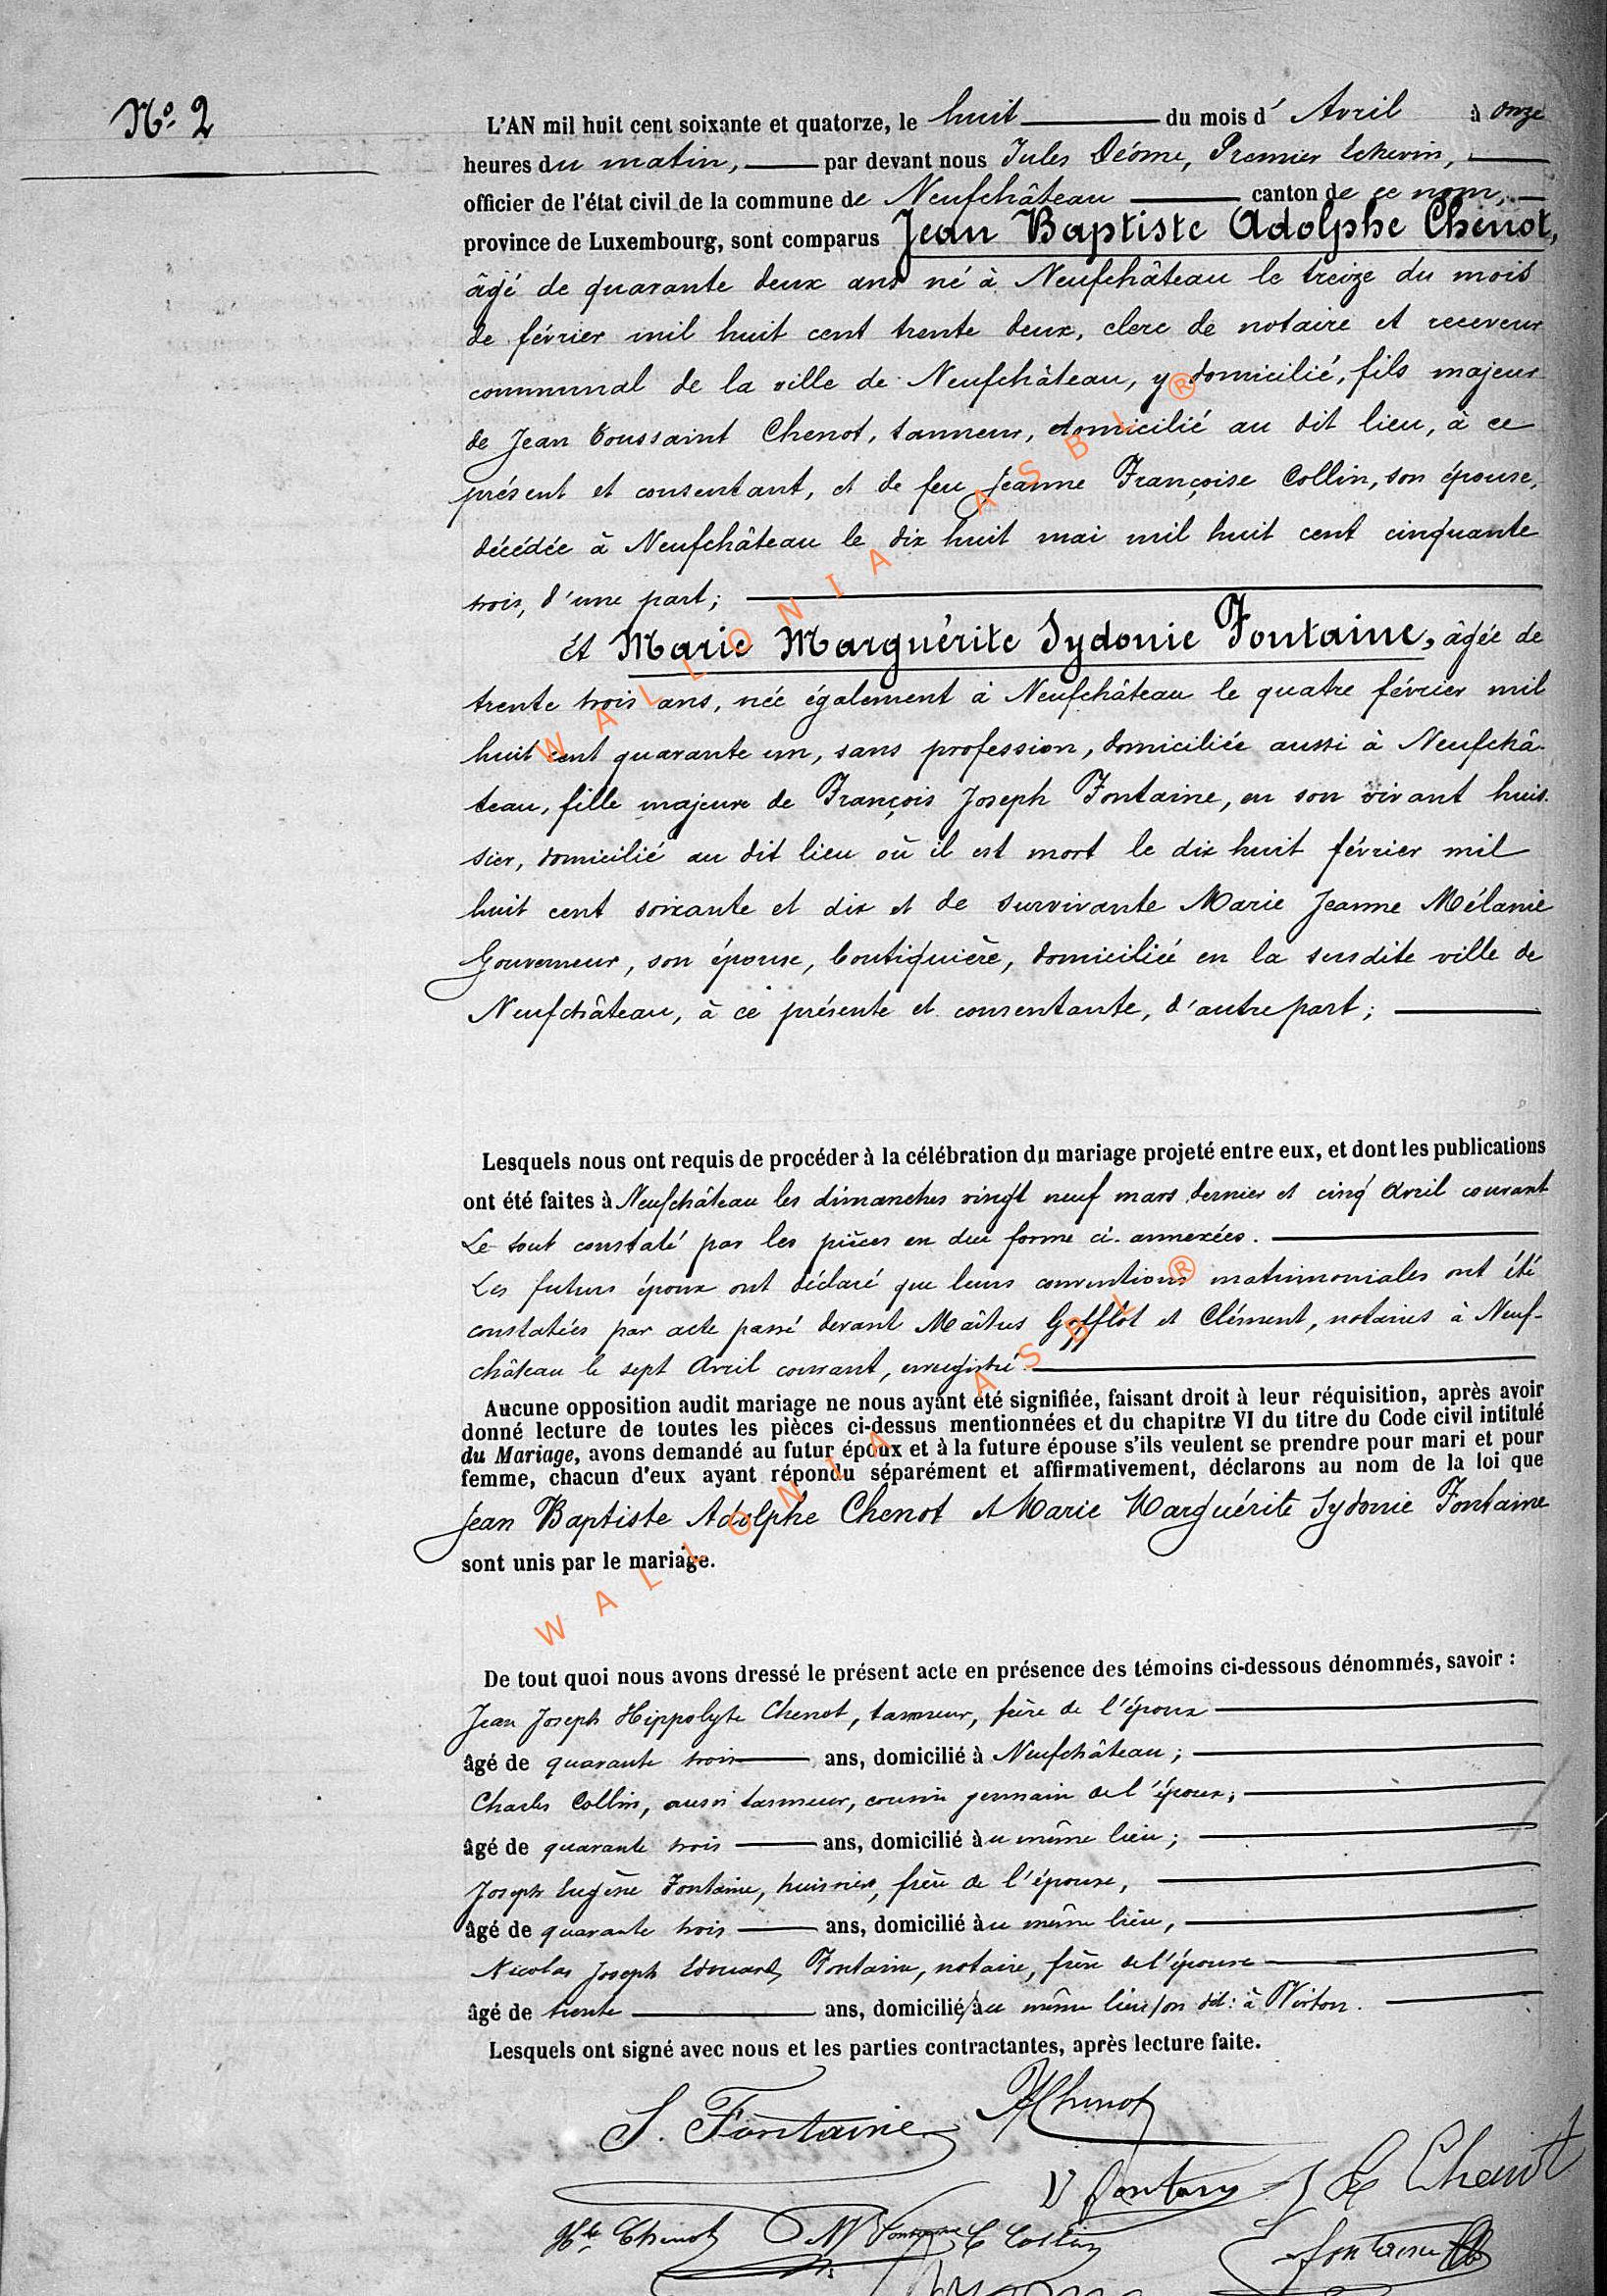 Nº 2
L'AN mil huit cent soixante et quatorze, le huit du mois d' Avril à onze
heures du matin, par devant nous Jules Déome, Premier Echevin,
officier de l'état civil de la commune de Neufchâteau canton de ce nom,
province de Luxembourg, sont comparus Jean Baptiste Adolphe Chenot,
âgé de quarante deux ans né à Neufchâteau le treize du mois
de février mil huit cent trente deux, clerc de notaire et receveur
communal de la ville de Neufchâteau, y domicilié, fils majeur
de Jean Toussaint Chenot, tanneur, domicilié au dit lieu, à ce
présent et consentant, et de feu Jeanne Françoise Collin, son épouse,
décédée à Neufchâteau le dix huit mai mil huit cent cinquante
trois, d'une part;
Et Marie Marguérite Sydonie Fontaine, âgée de
trente trois ans, née également à Neufchâteau le quatre février mil
huit cent quarante un, sans profession, domiciliée aussi à Neufchâ-
teau, fille majeure de François Joseph Fontaine, en son vivant huis-
sier, domicilié au dit lieu où il est mort le dix huit février mil
huit cent soixante et dix et de survivante Marie Jeanne Mélanie
Gouverneur, son épouse, boutiquière, domiciliée en la susdite ville de
Neufchâteau, à ce présente et consentante, d'autre part;
Lesquels nous ont requis de procéder à la célébration du mariage projeté entre eux, et dont les publications
ont été faites à Neufchâteau les dimanches vingt neuf mars dernier et cinq Avril courant
Le tout constaté par les pièces en due forme ci-annexées.
Les futurs époux ont déclaré que leurs conventions matrimoniales ont été
constatées par acte passé devant Maîtres Gofflot et Clément, notaires à Neuf-
château le sept Avril courant, enregistré
Aucune opposition audit mariage ne nous ayant été signifiée, faisant droit à leur réquisition, après avoir
donné lecture de toutes les pièces ci-dessus mentionnées et du chapitre VI du titre du Code civil intitulé
du Mariage, avons demandé au futur époux et à la future épouse s'ils veulent se prendre pour mari et pour
femme, chacun d'eux ayant répondu séparément et affirmativement, déclarons au nom de la loi que
Jean Baptiste Adolphe Chenot et Marie Marguérite Sydonie Fontaine
sont unis par le mariage.
De tout quoi nous avons dressé le présent acte en présence des témoins ci-dessous dénommés, savoir :
Jean Joseph Hippolyte Chenot, tanneur, frère de l'époux
âgé de quarante trois ans, domicilié à Neufchâteau;
Charles Collin, aussi tanneur, cousin germain de l'époux;
âgé de quarante trois ans, domicilié au même lieu;
Joseph Eugène Fontaine, huissier, frère de l'épouse,
âgé de quarante trois ans, domicilié au même lieu,
Nicolas Joseph Edouard Fontaine, notaire, frère de l'épouse
âgé de trente ans, domicilié/au même lieu/on dit: à Virton.
Lesquels ont signé avec nous et les parties contractantes, après lecture faite.
S. Fontaine AChenot
Fontaine Chenot
Hte Chenot C Collin Fontaine
WALLONIA ASBL ®
WALLONIA ASBL ®